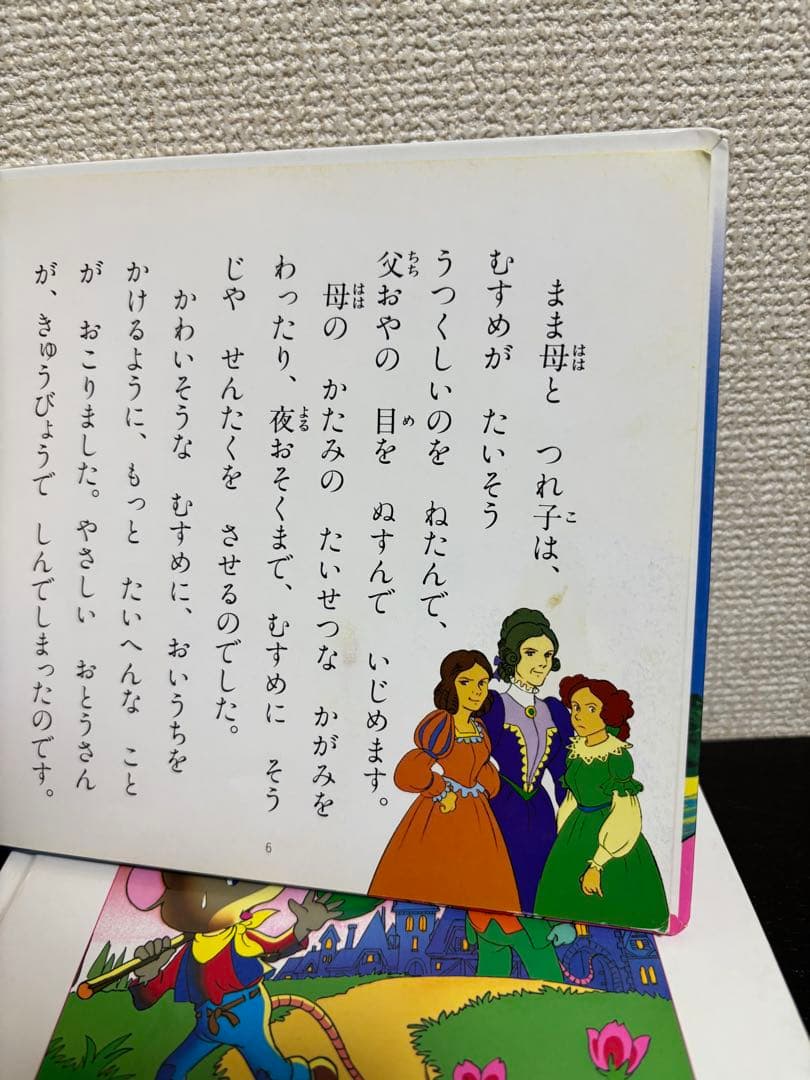 まま母と　つれ子は、
むすめが　たいそう
うつくしいのを　ねたんで、
父おやの　目を　ぬすんで　いじめます。
母の　かたみの　たいせつな　かがみを
わったり、夜おそくまで、むすめに　そう
じや　せんたくを　させるのでした。
かわいそうな　むすめに、おいうちを
かけるように、もっと　たいへんな　こと
が　おこりました。やさしい　おとうさん
が、きゅうびょうで　しんでしまったのです。
はは
こ
ちち
め
はは
よる
6